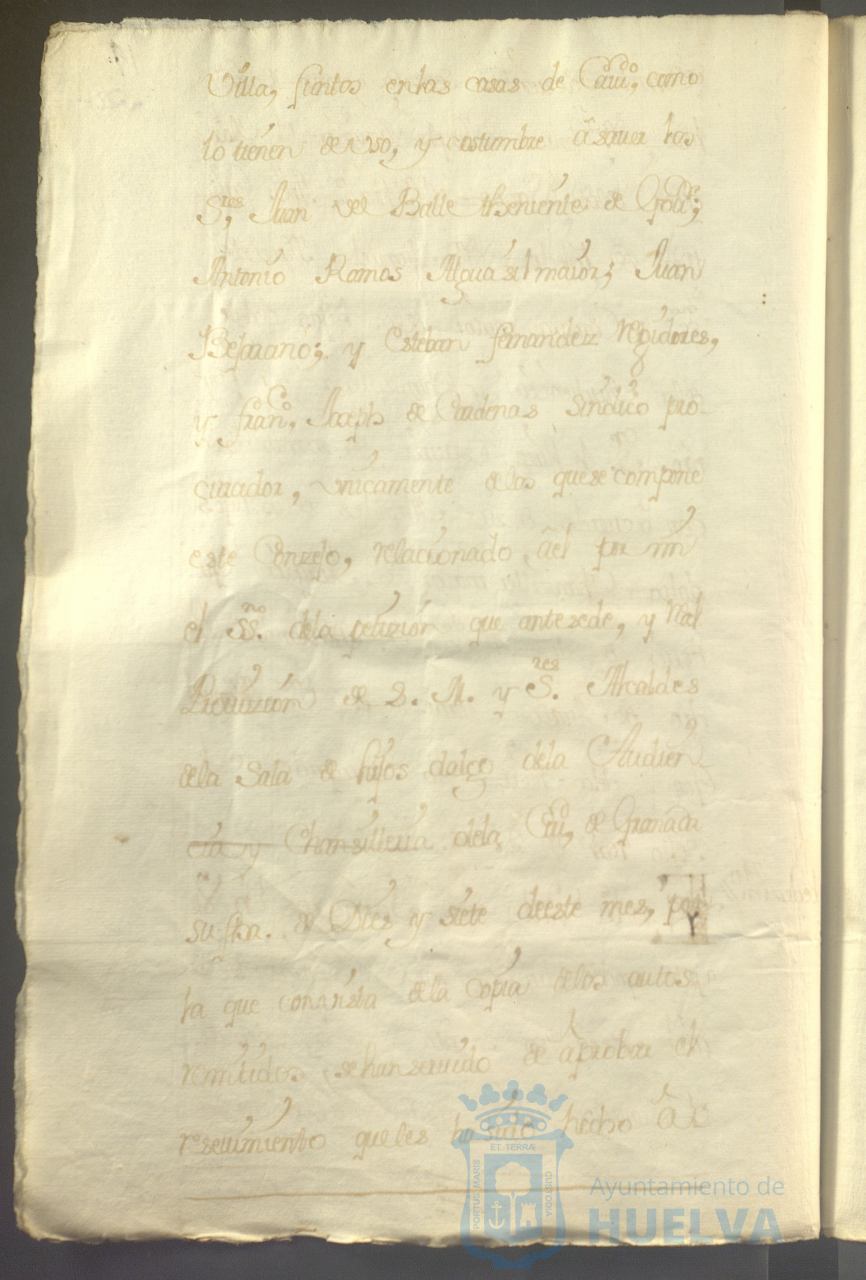 Villa, Juntos en las casas de Cavdo, como
lo tienen de uso, y costumbre â saver los
Sres, Juan del Balle theniente de
Antonio Ramos Alguasil maior; Juan
Bejarano; y Esteban fernandez regidores,
y franco, Joseph de Cardenas sindico pro-
curador, unicamente de los que se compone
este Conzejo, relacionado âel por mi
el ssno. de la petizion que antesede, y Real
Provizion de S. M. y Sres. Alcaldes
de la Sala de hijos dalgo de la Audien-
cia y Chansilleria de la Ciud, de Granada
su fha. de Dies y siete de este mes, por
la que conansta de la Copia de los autos
remitidos, se han servido de âprobar el
resevimiento que les ha sido hecho â
PORTUS MARIS
ET TERRÆ
CUSTODIA
Ayuntamiento de
HUELVA